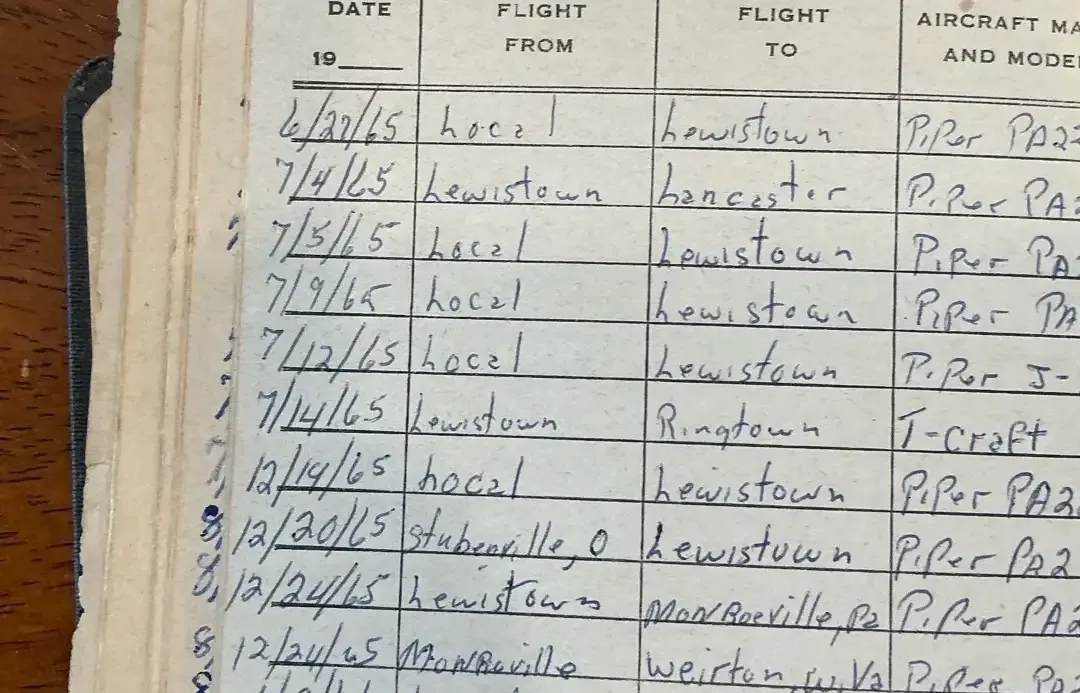 DATE FLIGHT FLIGHT AIRCRAFT MA
19 FROM TO AND MODE
6/27/65 Local Lewistown Piper PA22
7/4/65 Lewistown Lancaster Piper PA
7/5/65 Local Lewistown Piper PA
7/9/65 Local Lewistown Piper PA
7/12/65 Local Lewistown Piper J-
7/14/65 Lewistown Ringtown T-Craft
12/19/65 Local Lewistown Piper PA2
12/20/65 Stubenville, O Lewistown Piper PA2
12/24/65 Lewistown MonRoeville, Pa Piper PA2
12/24/65 MonRoville Weirton, W. Va Piper PA